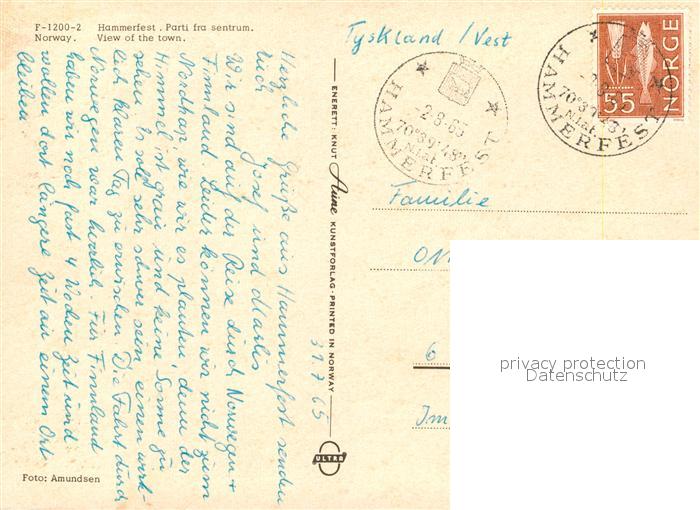 F-1200-2 Hammerfest. Parti fra sentrum.
Norway. View of the town.
Herzliche Grüße aus Hammerfest senden
Euch Josef und Marlis
Wir sind auf der Reise durch Norwegen +
Finnland. Leider können wir nicht zum
Nordkap, wie wir es planten, denn der
Himmel ist grau und keine Sonne zu
sehen. Es soll sehr schwer sein einen wirk-
lich klaren Tag zu erwischen. Die Fahrt durch
Norwegen war herrlich. Für Finnland
haben wir noch fast 4 Wochen Zeit und
wollen dort längere Zeit an einem Ort
bleiben
31.7.65
Foto: Amundsen
ENERETT: KNUT Aune KUNSTFORLAG · PRINTED IN NORWAY
ULTRA
Tyskland / Vest
2-8-65
70°39'48"
N.lat.
HAMMERFEST
NORGE
55
70°39'48"
N.lat.
HAMMERFEST
Familie
6
Im
privacy protection
Datenschutz